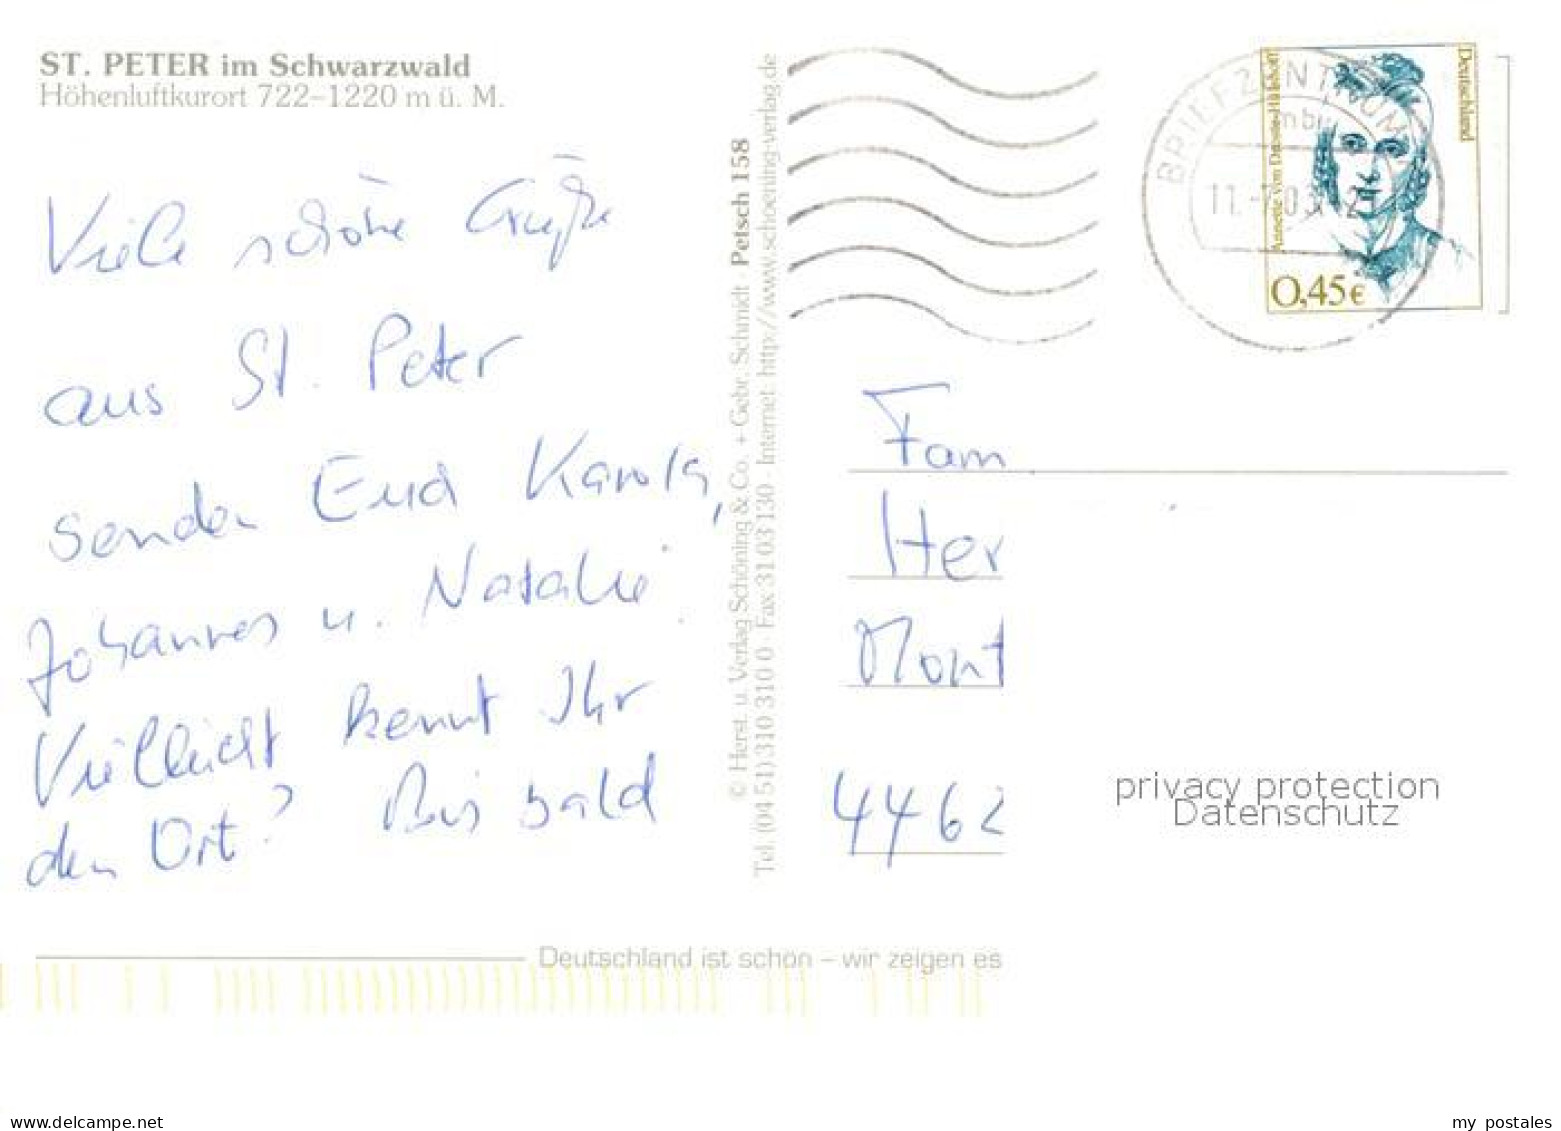 ST. PETER im Schwarzwald
Höhenluftkurort 722–1220 m ü. M.
Viele schöne Grüße
aus St. Peter
senden Euch Karola,
Johannes u. Natalie.
Vielleicht kennt Ihr
den Ort? Bis bald
© Herst. u. Verlag Schöning & Co. + Gebr. Schmidt · Petsch 158
Tel. (04 51) 3 10 3 10 0 · Fax 31 03 130 · Internet: http://www.schoening-verlag.de
BRIEFZENTRUM
11.-7.03
Deutschland
Annette von Droste-Hülshoff
0,45€
Fam
Her
Mont
4462
privacy protection
Datenschutz
Deutschland ist schön – wir zeigen es
www.delcampe.net
my_postales